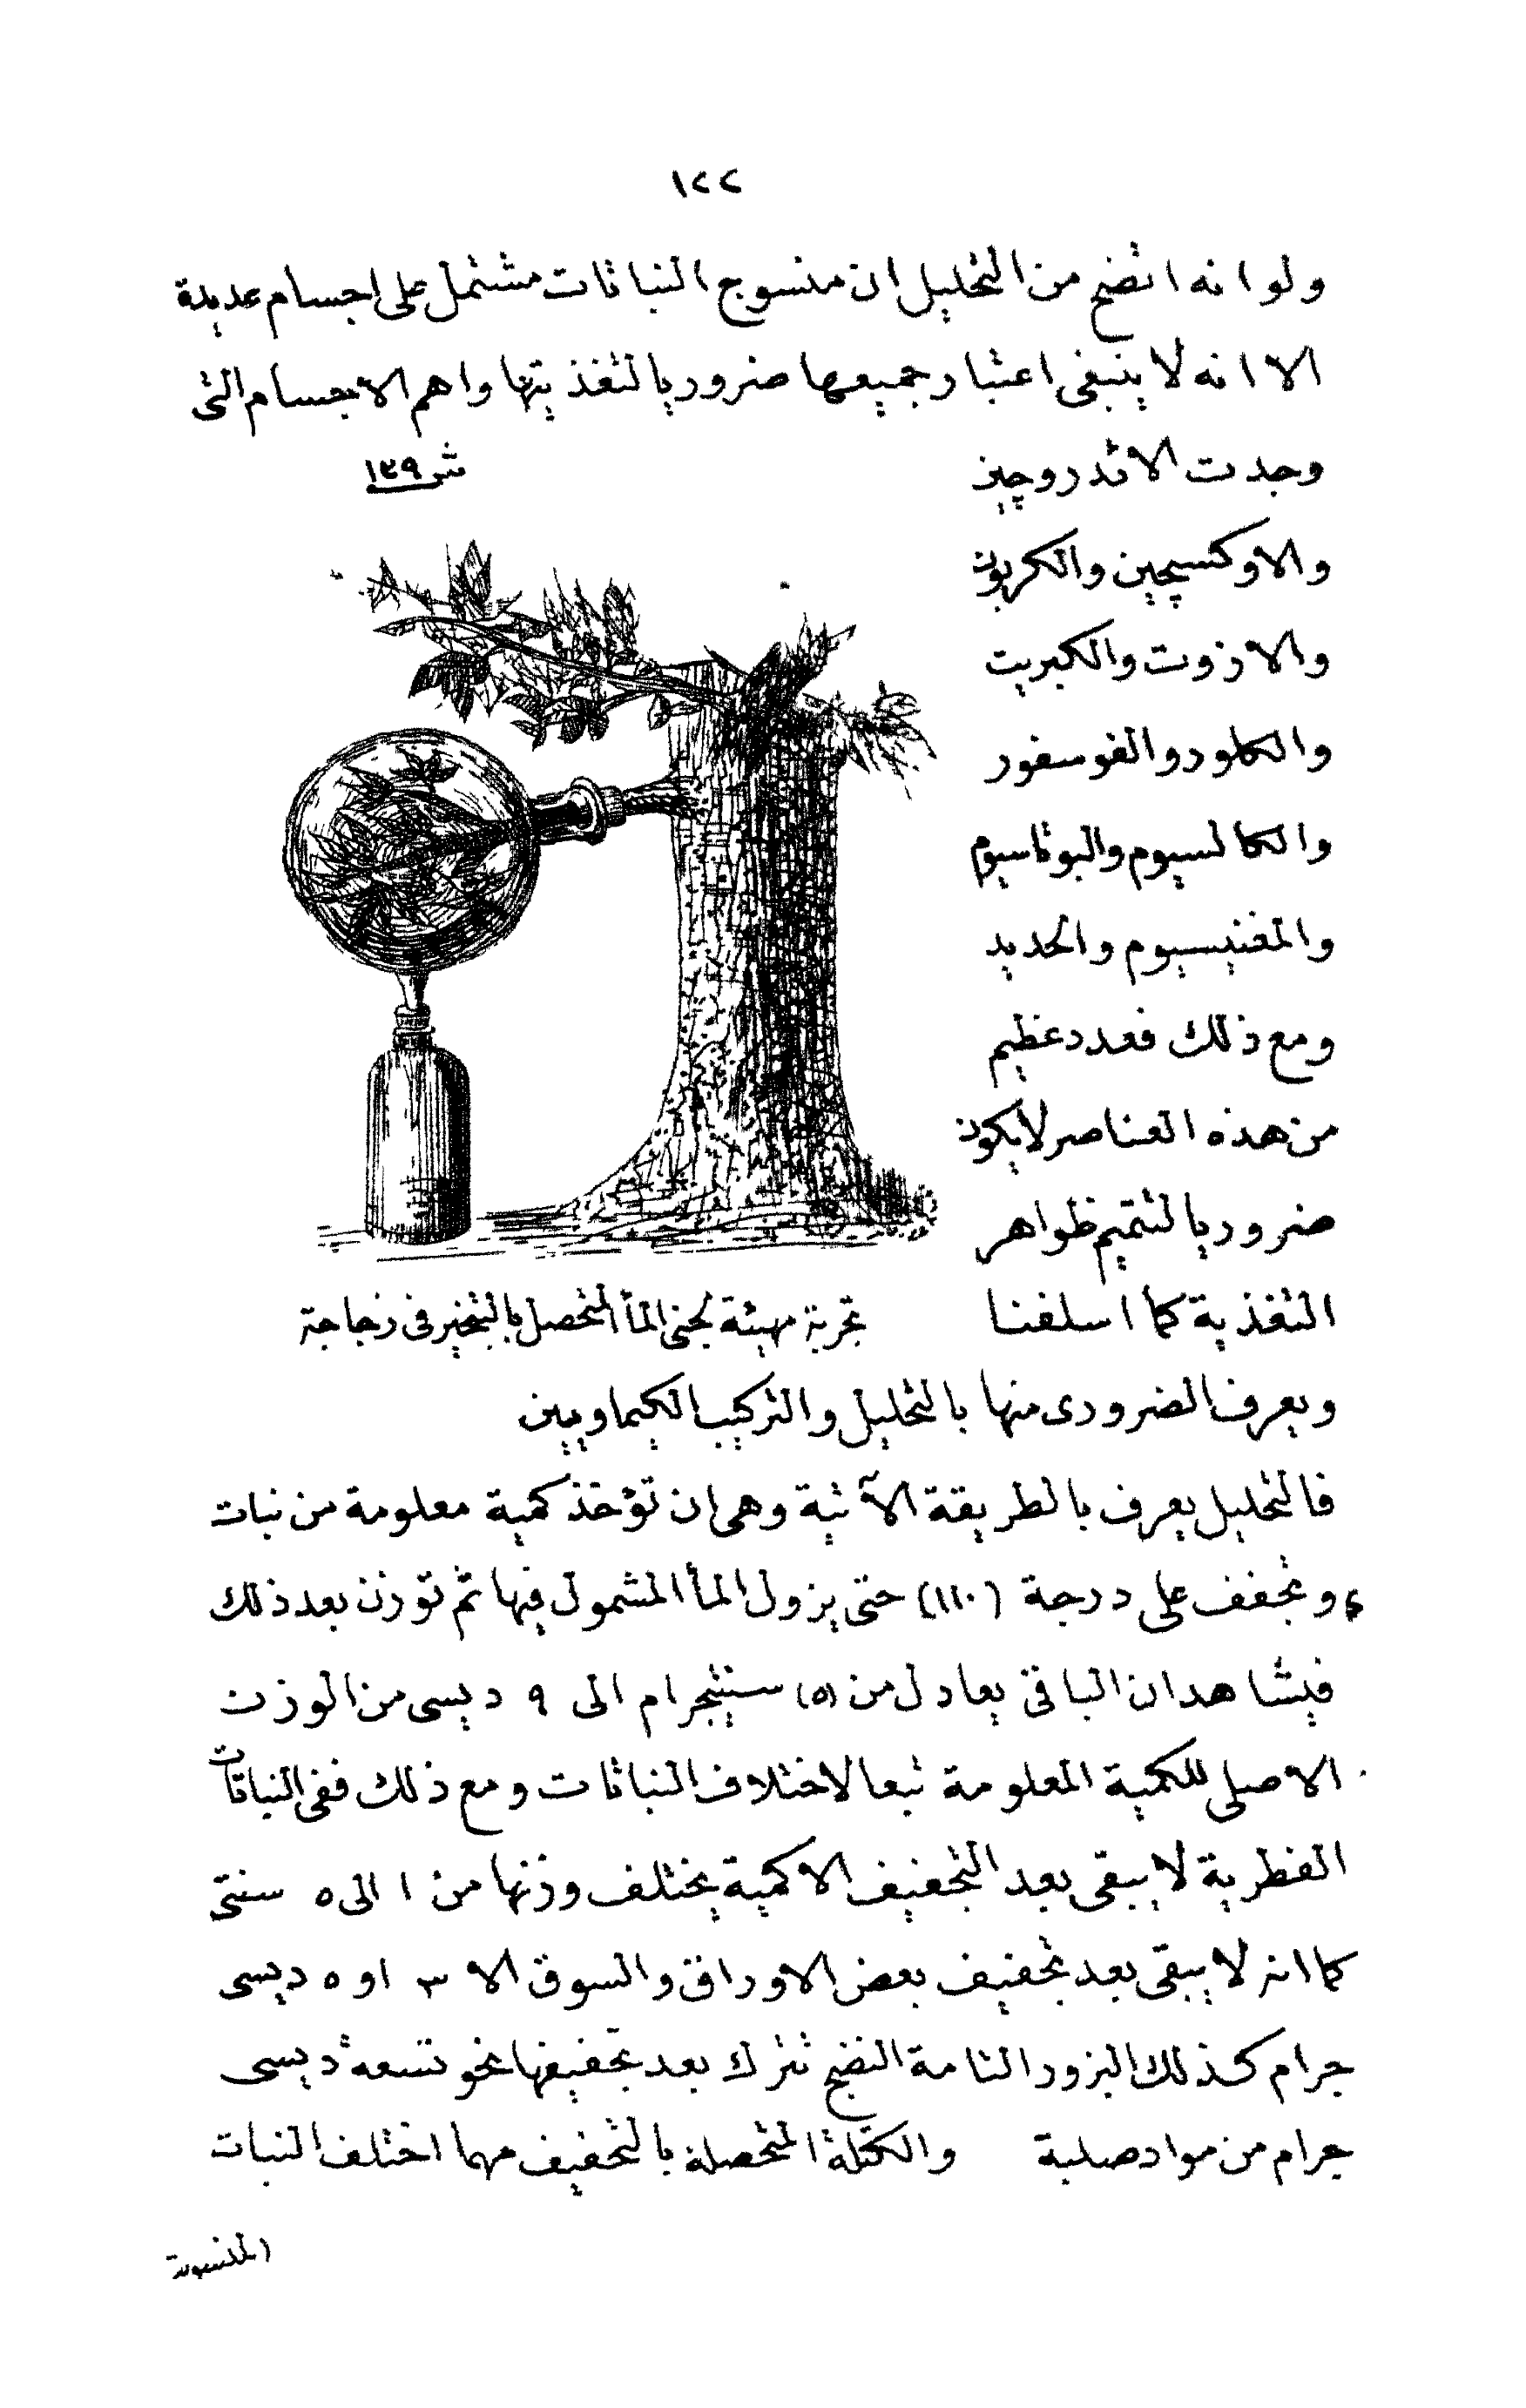 ١٢٢
ولو انه اتضح من التحليل ان منسوج النباتات مشتمل على اجسام عديدة
الا انه لا ينبغى اعتبار جميعها ضروريا لتغذيتها واهم الاجسام التى
وجدت الاندروچين
شر ١٣٩
والاوكسيچين والكربون
والازوت والكبريت
والكلور والفوسفور
والكالسيوم والبوتاسيوم
والمغنيسيوم والحديد
ومع ذلك فعدد عظيم
من هذه العناصر لا يكون
ضروريا لتتميم ظواهر
التغذية كما اسلفنا
تجربة مهيئة لجنى المأ المتحصل بالتبخير فى زجاجة
ويعرف الضرورى منها بالتحليل والتركيب الكيماويين
فالتحليل يعرف بالطريقة الآتية وهى ان تؤخذ كمية معلومة من نبات
وتجفف على درجة (١١٠) حتى يزول المأ المشمول فيها ثم توزن بعد ذلك
فيشاهد ان الباقى يعادل من (٥) سنتيجرام الى ٩ ديسى من الوزن
الاصلى للكمية المعلومة تبعا لاختلاف النباتات ومع ذلك ففى النباتات
الفطرية لا يبقى بعد التجفيف الا كمية يختلف وزنها من ١ الى ٥ سنتى
كما انه لا يبقى بعد تجفيف بعض الاوراق والسوق الا ٣ او ٥ ديسى
جرام كذلك البزور التامة النضج تترك بعد تجفيفها نحو تسعة ديسى
جرام من مواد صلبة والكتلة المتحصلة بالتجفيف مهما اختلف النبات